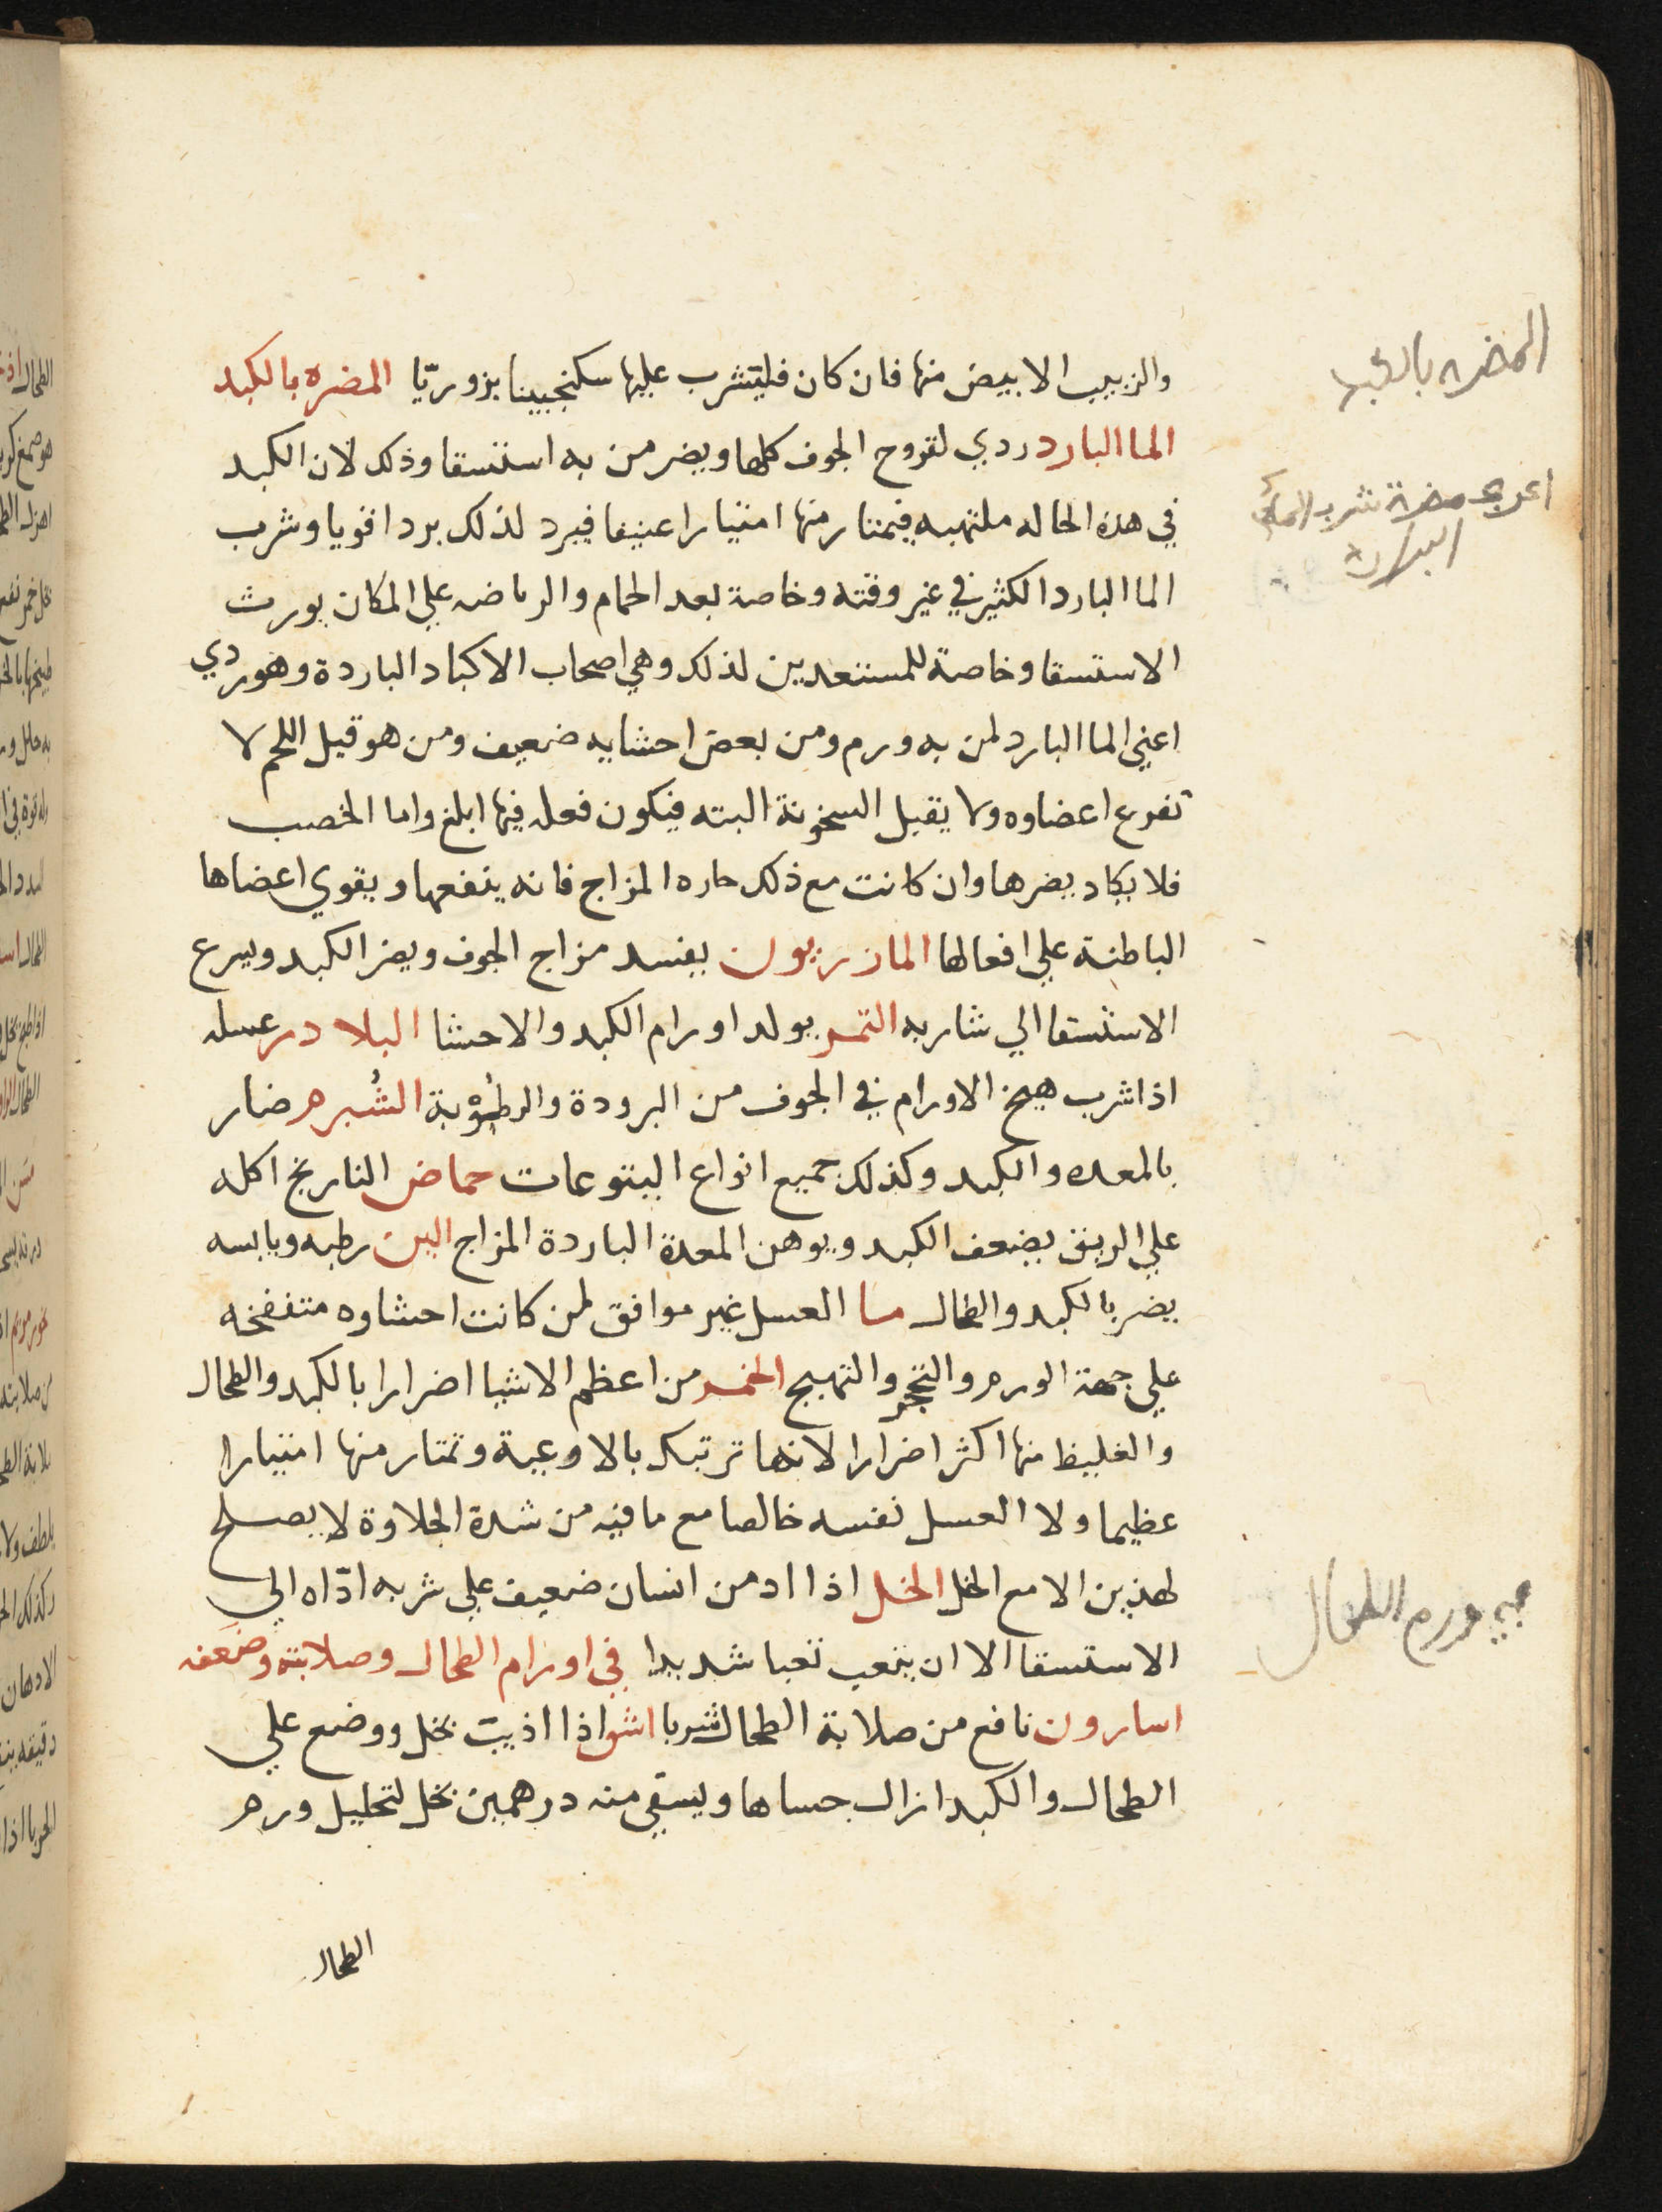 والزبيب الابيض منها فان كان فليتشرب عليها سكنجبينا بزوريّا المضره بالكبد
الما البارد ردي لقروح الجوف كلها ويضر من به استسقا وذلك لان الكبد
في هذه الحاله ملتهبه فيمتار منها امتيارا عنيفا فيبرد لذلك بردا قويا وشرب
الما البارد الكثير في غير وقته وخاصة بعد الحمام والرياضه علي المكان يورث
الاستسقا وخاصة للمستعدين لذلك وهي اصحاب الاكباد الباردة وهو ردي
اعني الما البارد لمن به ورم ومن بعض احشايه ضعيف ومن هو قيل اللحم لا
تفرع اعضاوه ولا يقبل السخونة البته فيكون فعله فيها ابلغ واما الخصب
فلا يكاد يضرها وان كانت مع ذلك حاره المزاج فانه ينفعها ويقوي اعضاها
الباطنة علي افعالها المازريون يفسد مزاج الجوف ويضر الكبد ويسرع
الاستسقا الي شاربه التمر يولد اورام الكبد والاحشا البلادر عسله
اذا شرب هيج الاورام في الجوف من البرودة والرطوبة الشُبرم ضار
بالمعده والكبد وكذلك جميع انواع اليتوعات حماض النارنج اكله
علي الريق يضعف الكبد ويوهن المعدة الباردة المزاج البن رطبه ويابسه
يضر بالكبد والطحال ما العسل غير موافق لمن كانت احشاوه متنفخه
علي جهة الورم والتحجر والتهيج الخمر من اعظم الاشيا اضرارا بالكبد والطحال
والغليظ منها اكثر اضرارا لانها ترتبك بالاوعية وتمتار منها امتيارا
عظيما ولا العسل نفسه خالصا مع ما فيه من شدة الحلاوة لا يصلح
لهذين الا مع الخل الخل اذا ادمن انسان ضعيف علي شربه ادّاه الي
الاستسقا الا ان يتعب تعبا شديدا في اورام الطحال وصلابته وضعفه
اسارون نافع من صلابة الطحال شربا اشق اذا اذيب بخل ووضع علي
الطحال والكبد ازال جساها ويسقي منه درهمين بخل لتحليل ورم
الطحال
المضره بالكبد
مضرة شرب الماء
البارد
ورم الطحال